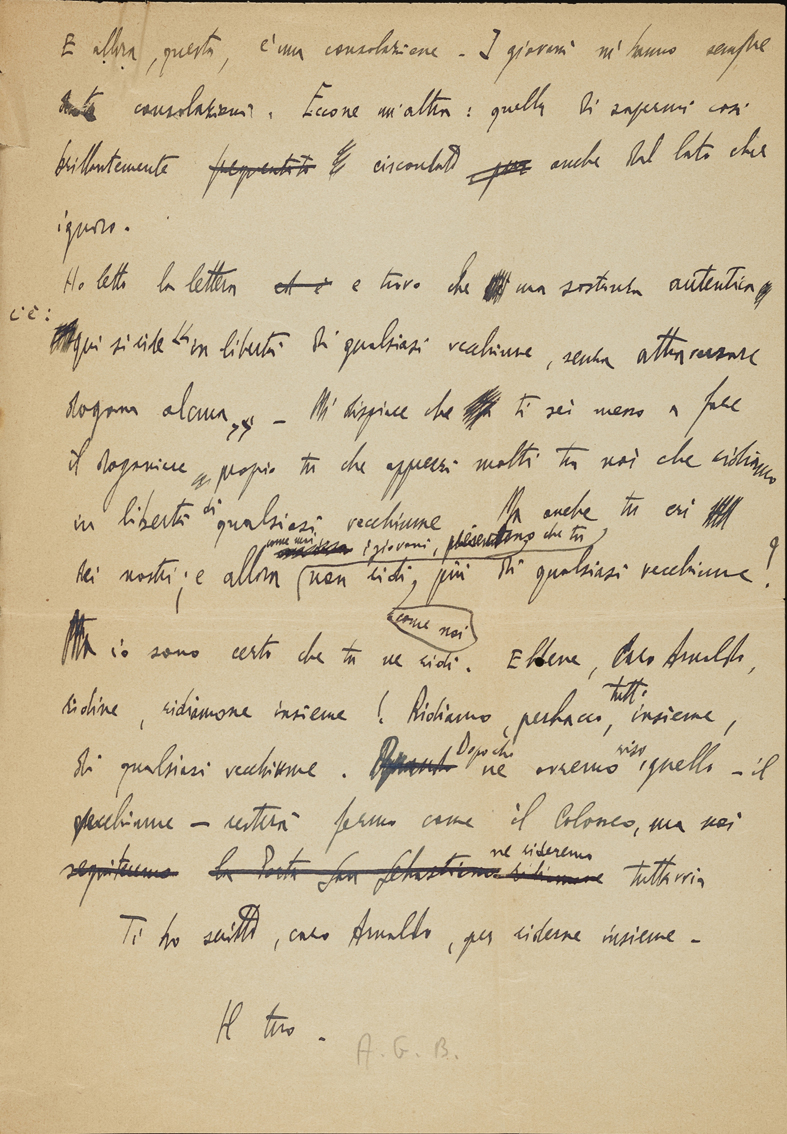 E allora, questa, è una consolazione – I giovani m'hanno sempre
dato consolazioni. Eccone un'altra: quella di sapermi così
brillantemente frequentato e circondato pur anche dal lato che
ignoro.
Ho letto la lettera e trovo che una sostanza autentica
c'è:
qui si ride "in libertà di qualsiasi vecchiume, senza attraversare
dogana alcuna" – Mi dispiace che ti sei messo a fare
il doganiere proprio tu che apprezzi molti tra noi che ridiamo
in libertà di qualsiasi vecchiume Ma anche tu eri
come mai i giovani, presentano che tu
dei nostri; e allora non ridi, più di qualsiasi vecchiume?
come noi
Ma io sono certo che tu ne ridi. Ebbene, Caro Arnaldo,
ridine, ridiamone insieme! Ridiamo, perbacco, tutti insieme,
di qualsiasi vecchiume. Dopo che ne avremo riso, quello – il
vecchiume – resterà fermo come il Colosseo, ma noi
seguiteremo la Porta San Sebastiano ridiamone ne rideremo tuttavia
Ti ho scritto, caro Arnaldo, per riderne insieme –
Il tuo.
A. G. B.